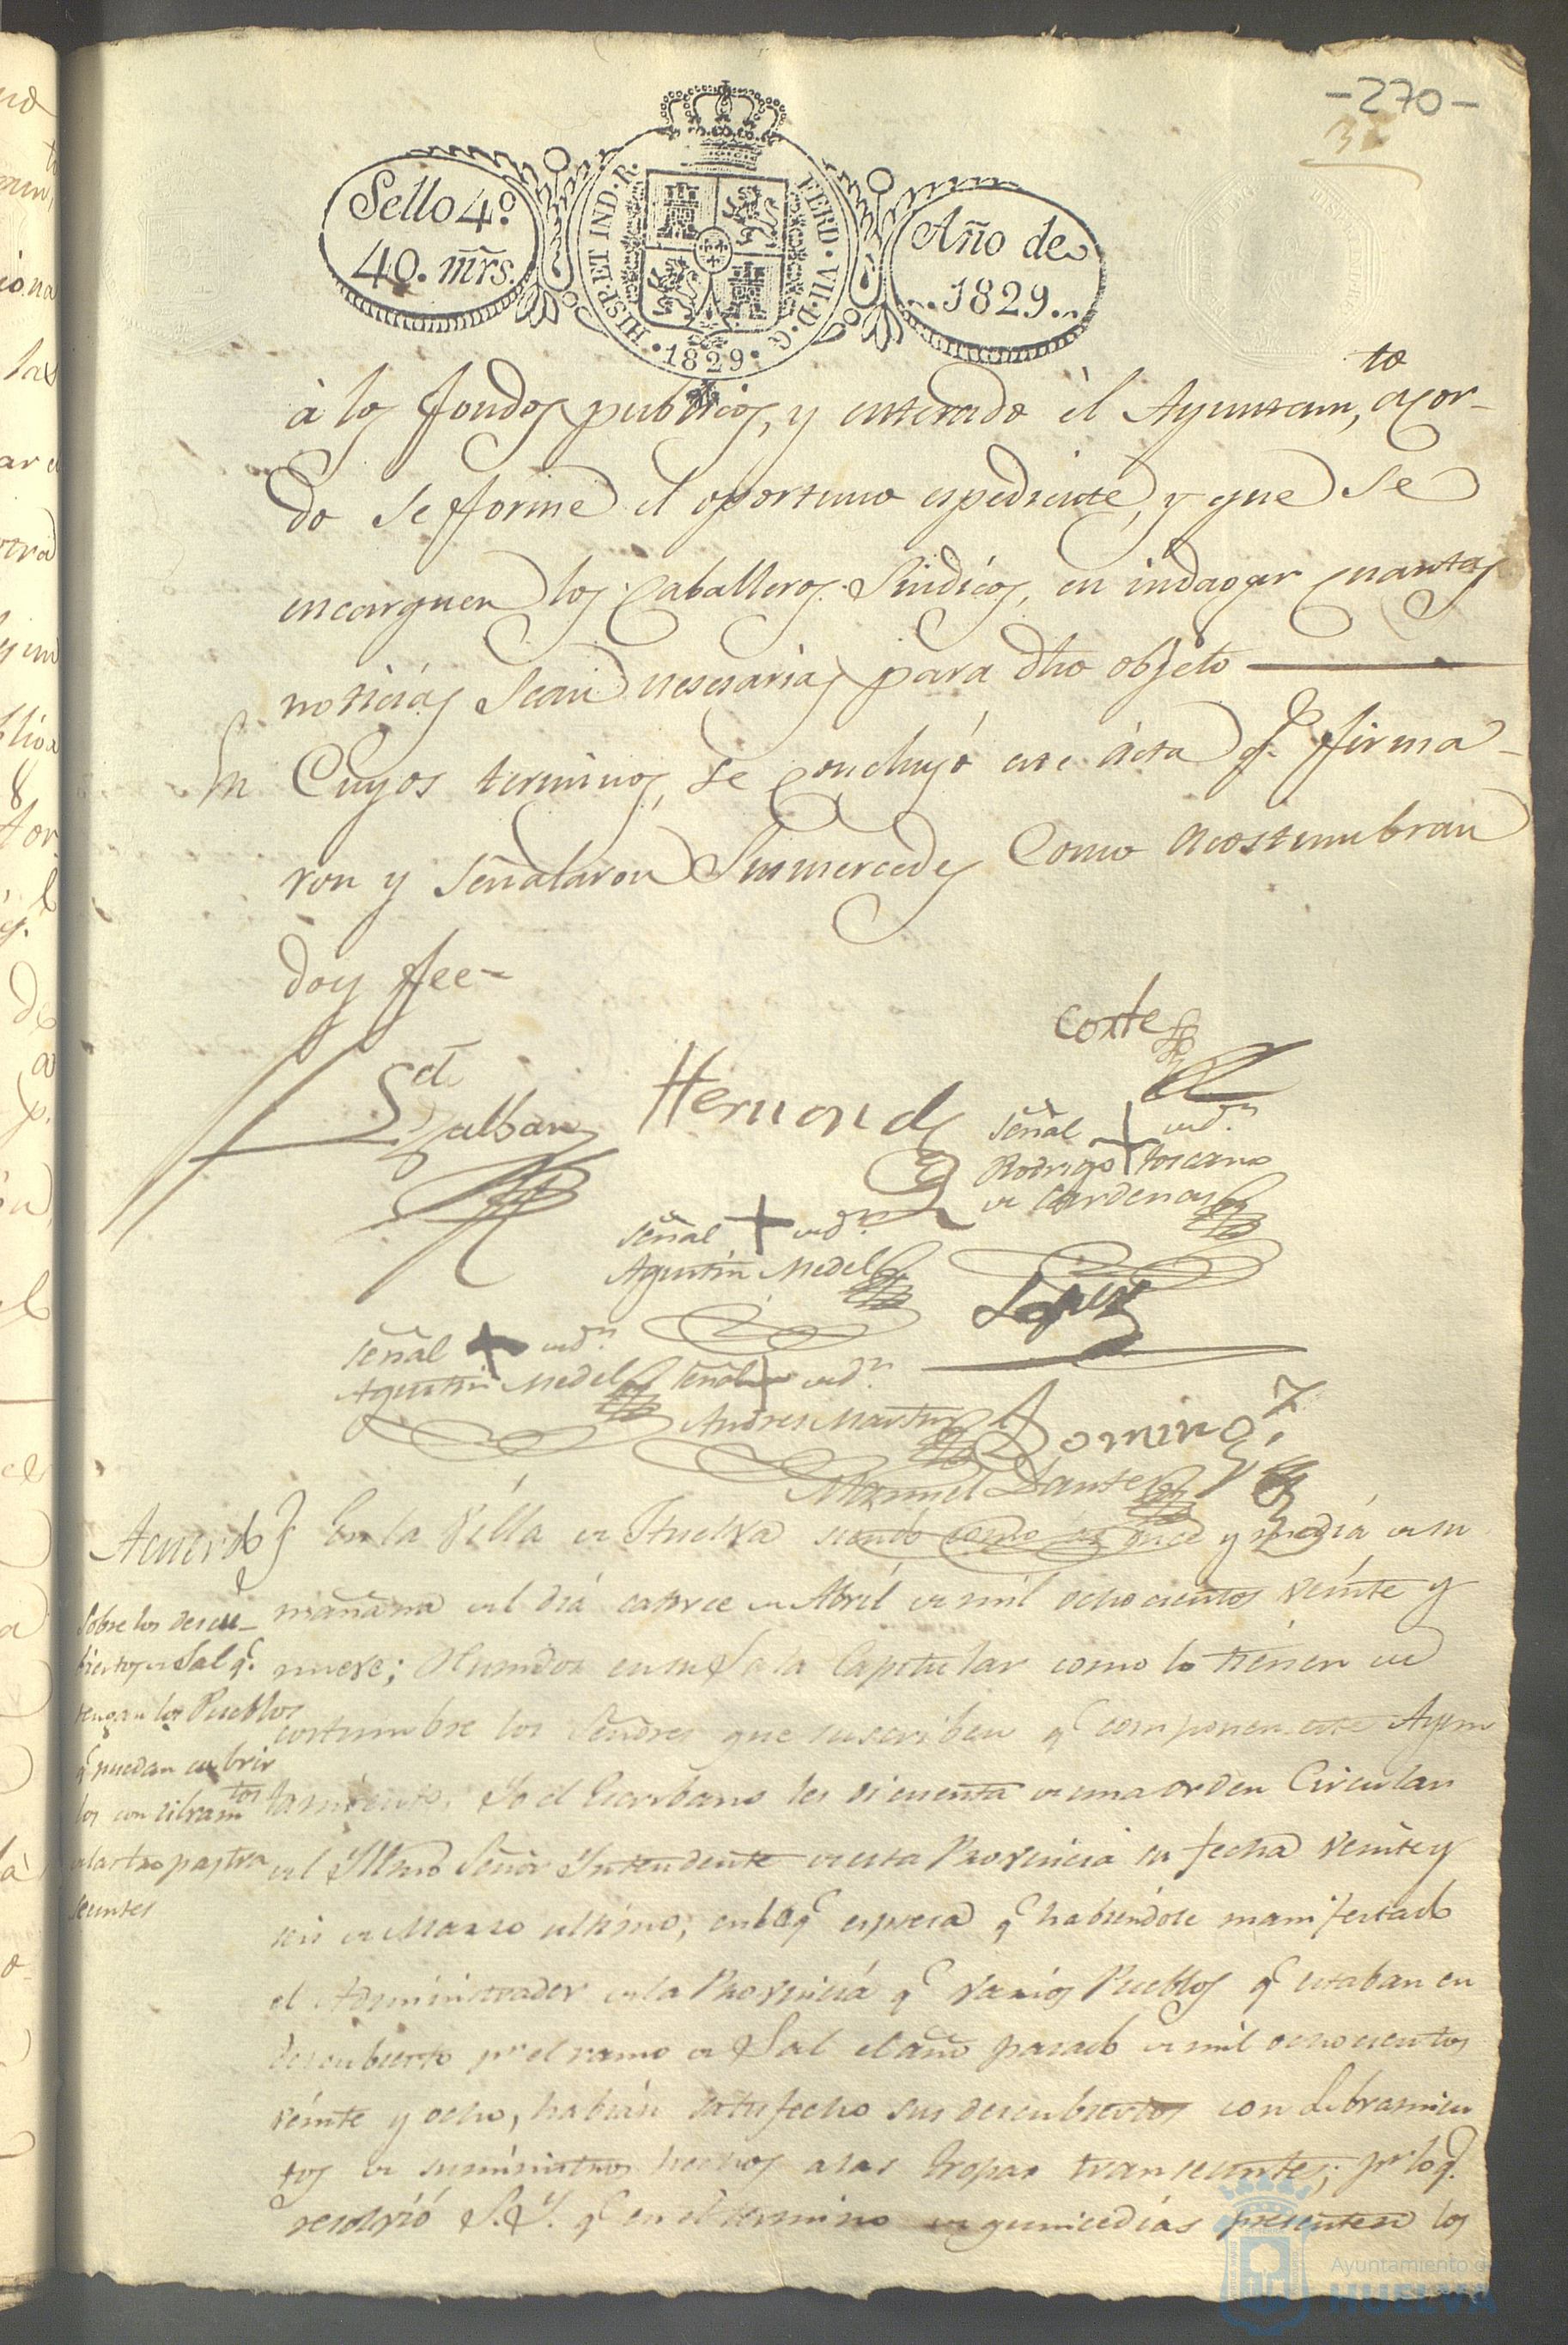 -270-
Sello 4º
40. mrs.
HISP. ET IND. R.
FERD. VII. D. G.
1829
Año de
1829
à los fondos publicos, y enterado èl Ayuntam.to acor-
do se forme el oportuno espediente, y que se
encarguen los Caballeros Sindicos, en indagar quantas
noticias sean nesesarias para dho objeto
En Cuyos terminos, se concluyó este ácta q.e firma-
ron y señalaron Susmercedes Como acostumbran
doy fee-
Cortes
Galban
Hernandz
Señal + de D.n
Rodrigo Toscano
de Cardenas
Señal + de D.n
Agustin Medel
Lopez
Señal + de D.n
Agustin Medel
Señal + de D.n
Andres Martin
Doming.z
Manuel Dante
Acuerdo
Sobre los descu-
biertos de Sal q.e
tengan los Pueblos
q.e puedan cubrir
los con libram.tos
a las tropas tran
seuntes
En la Villa de Huelva siendo como las y media de su
mañana del diá catorce de Abril de mil ochocientos veinte y
nueve; Reunidos en su Sala Capitular como lo tiénen de
costumbre los Señores que suscriben q.e componen este Ayun
tamiento; Yo el Escribano les di cuenta de una orden Circular
del Yllmo Señor Yntendente de esta Provincia su fecha veinte y
seis de Marzo ultimo; en la q.e espresa q.e habiéndole manifestado
el Administrador de la Provinciá q.e varios Pueblos q.e estaban en
descubierto p.r el ramo de Sal el año pasado de mil ochocientos
veinte y ocho, habian satisfecho sus descubiertos con Libramien
tos de suministros hechos a las tropas transeuntes; p.r lo q.e
resolvió S.S.Y. q.e en el termino de quince dias presenten los
Ayuntamiento de
HUELVA